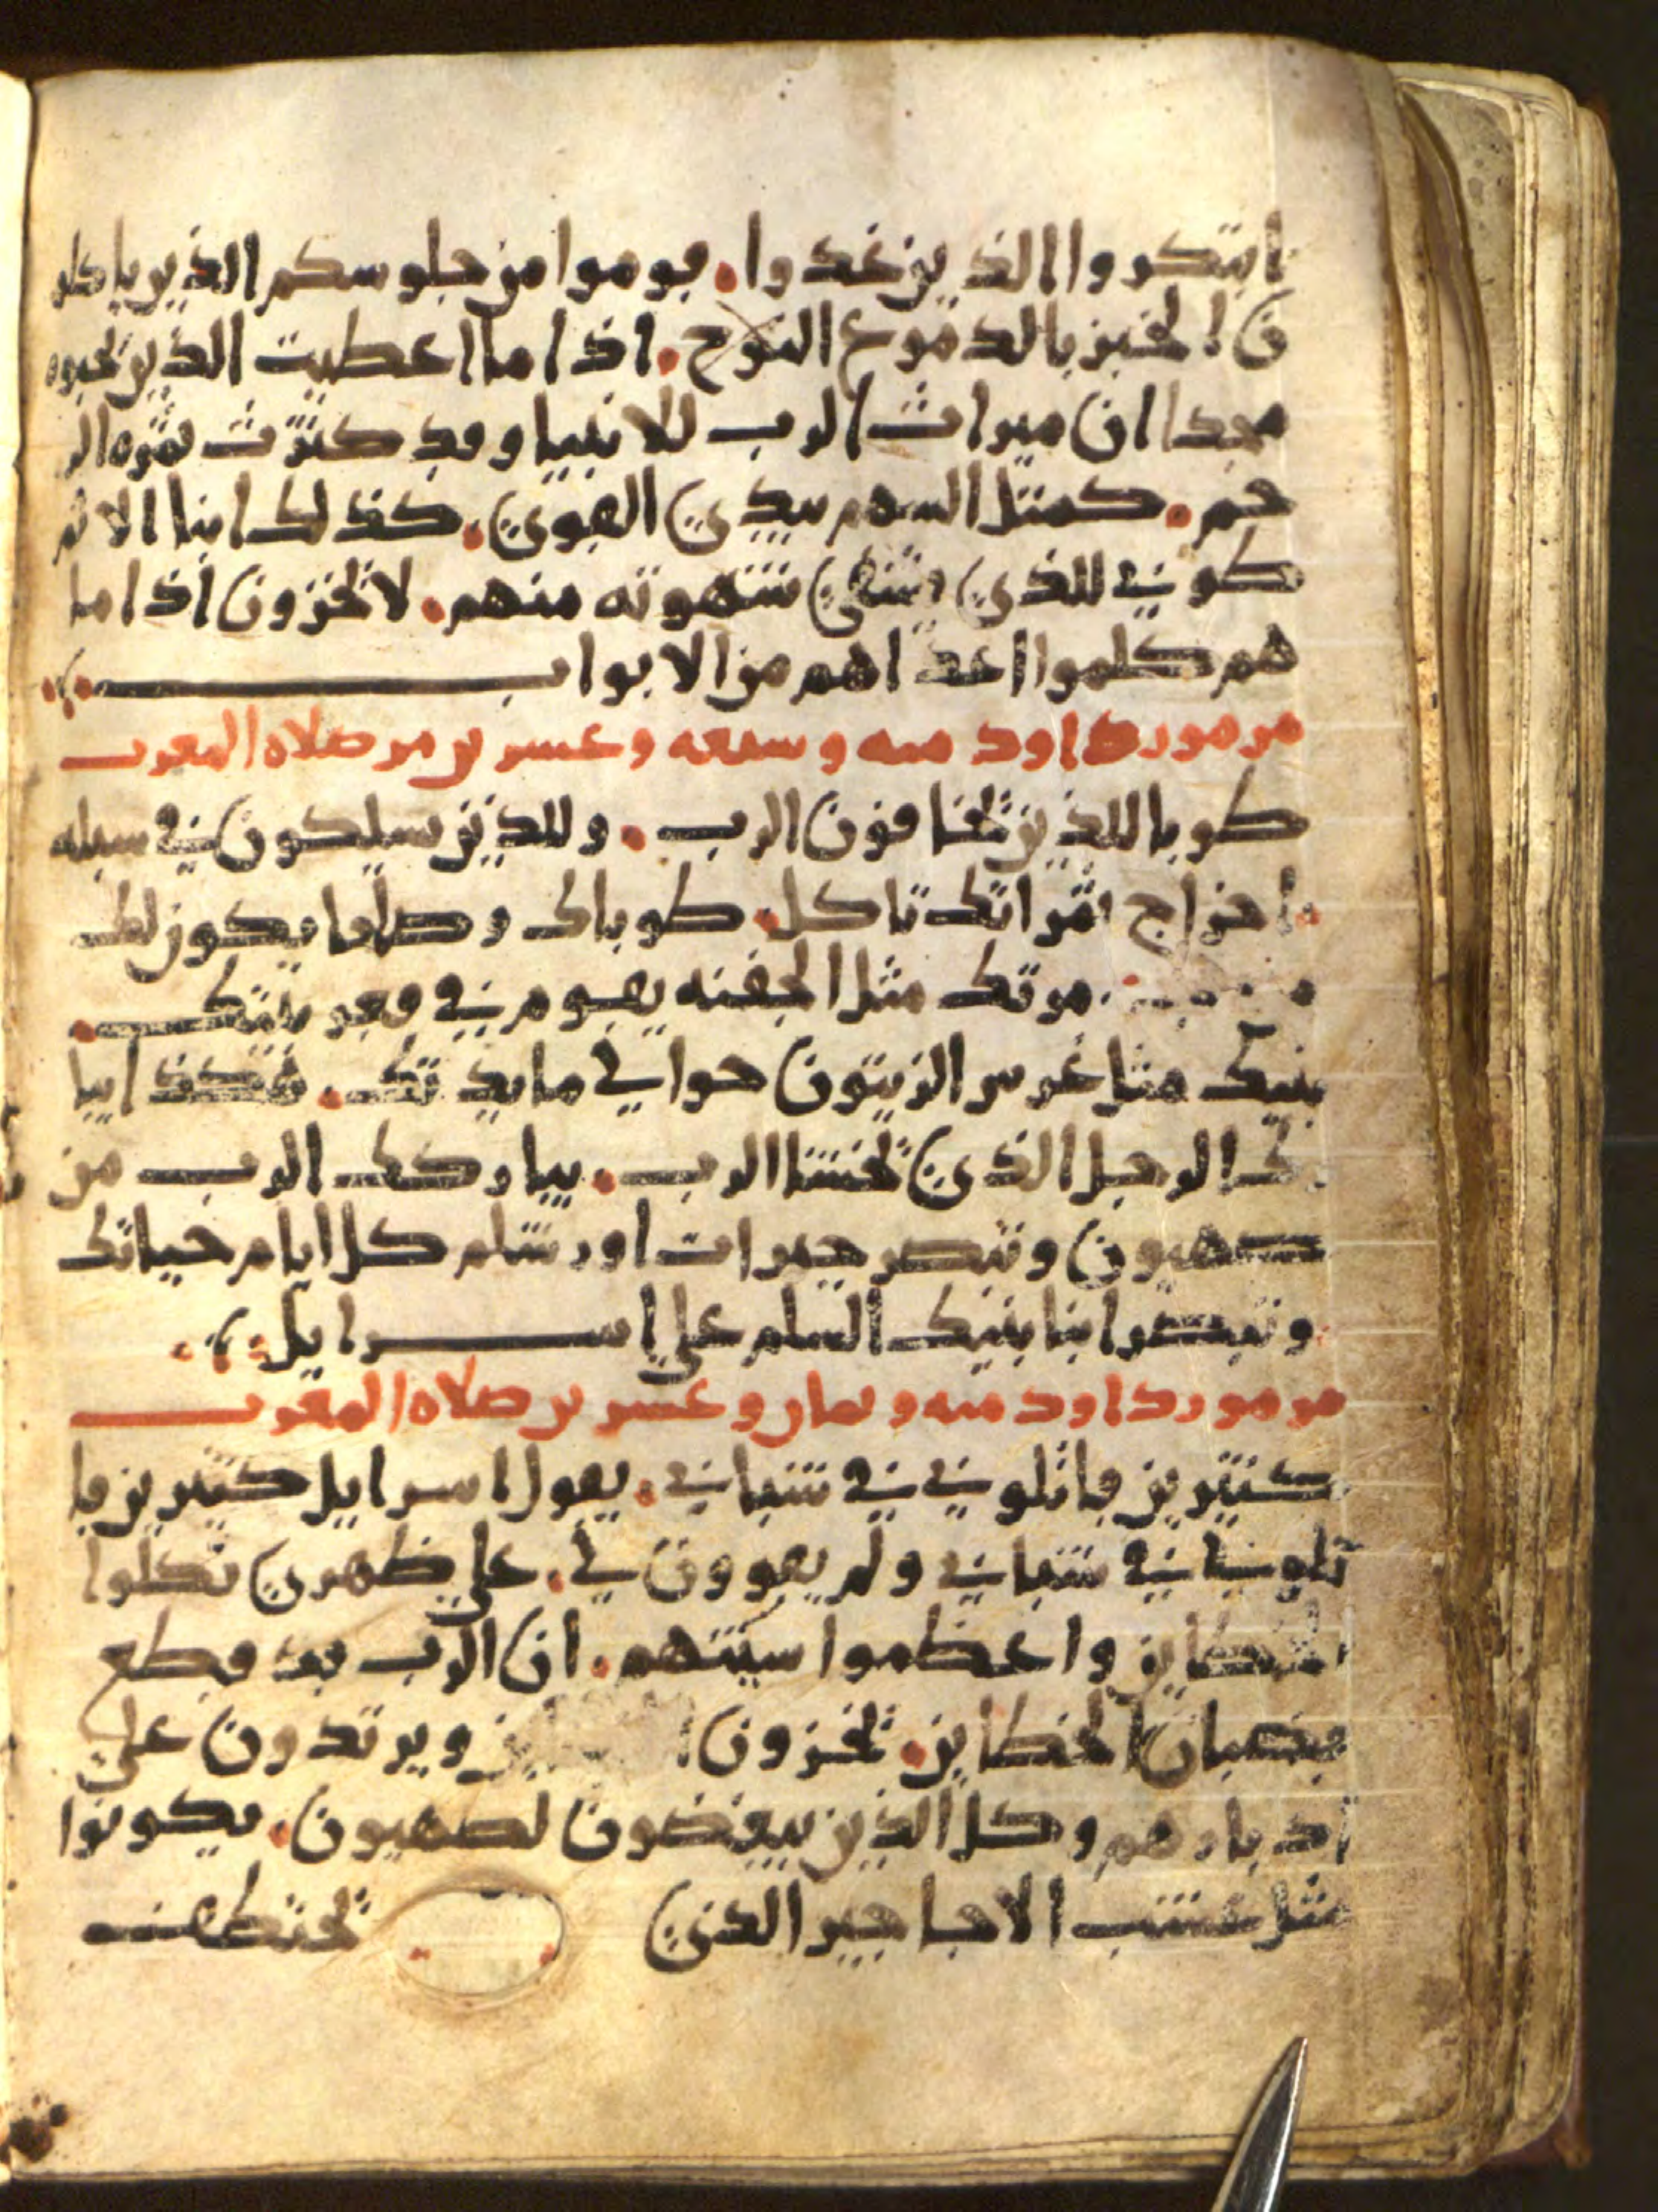 ابتكروا الذين غدوا. قوموا من جلوسكم الذين ياكلو
ن الخبز بالدموع النوح. اذا ما اعطيت الذين تحبوه
مجدا ان ميراث الرب للانبيا وقد كثرت ثمره الر
حم. كمثل السهم بيدي القوي. كذلك ابنا الاثم
طوبى للذي يشفي شهوته منهم. لا تخزون اذا ما
هم كلموا اعداهم من الابواب
مزمور داود مىه وسبعه وعشرين من صلاه المغرب
طوبا للذين يخافون الرب. وللذين يسلكون في سبله
اخراج ثمراتك تاكل. طوباك وصلاحا يكون لك
موتك مثل الجفنه يقوم في قعر بيتك.
بنيك مثل غرس الزيتون حوالي مايدتك. هكذا يبا
رك الرجل الذي يخشا الرب. يباركك الرب من
صهيون وتبصر خيرات اورشلم كل ايام حياتك
وتبصر ابنا بنيك السلم علي اسرايل
مزمور داود مىه وثمان وعشرين صلاه المغرب
كثيرين قاتلوني في شبابي. يقول اسرايل كثيرين قا
تلوني في شبابي ولم يقوون لي. علي ظهري نكلوا
الخطاين واعظموا سيتهم. ان الرب قد قطع
قضبان الخطاين. يخزون ويرتدون علي
ادبارهم وكل الذين يبغضون لصهيون. يكونوا
مثل عشب الاجاجير الذي تختطف